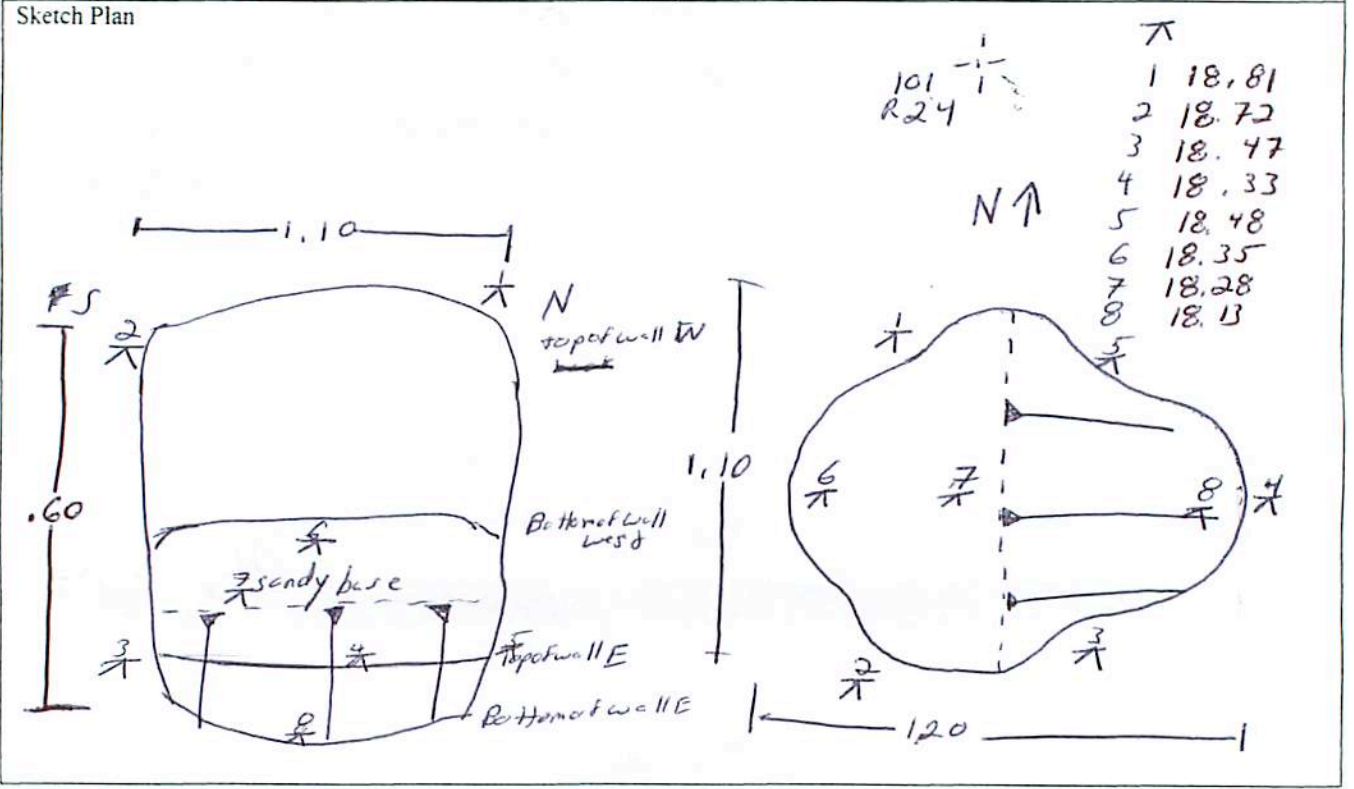 Sketch Plan
101
R24
1 18.81
2 18.72
3 18.47
4 18.33
5 18.48
6 18.35
7 18.28
8 18.13
N
1.10
S
N
top of wall W
2
1
.60
6
Bottom of wall
west
7 sandy base
3
4
5
Top of wall E
8
Bottom of wall E
1
5
1.10
6
7
8
4
3
2
1.20